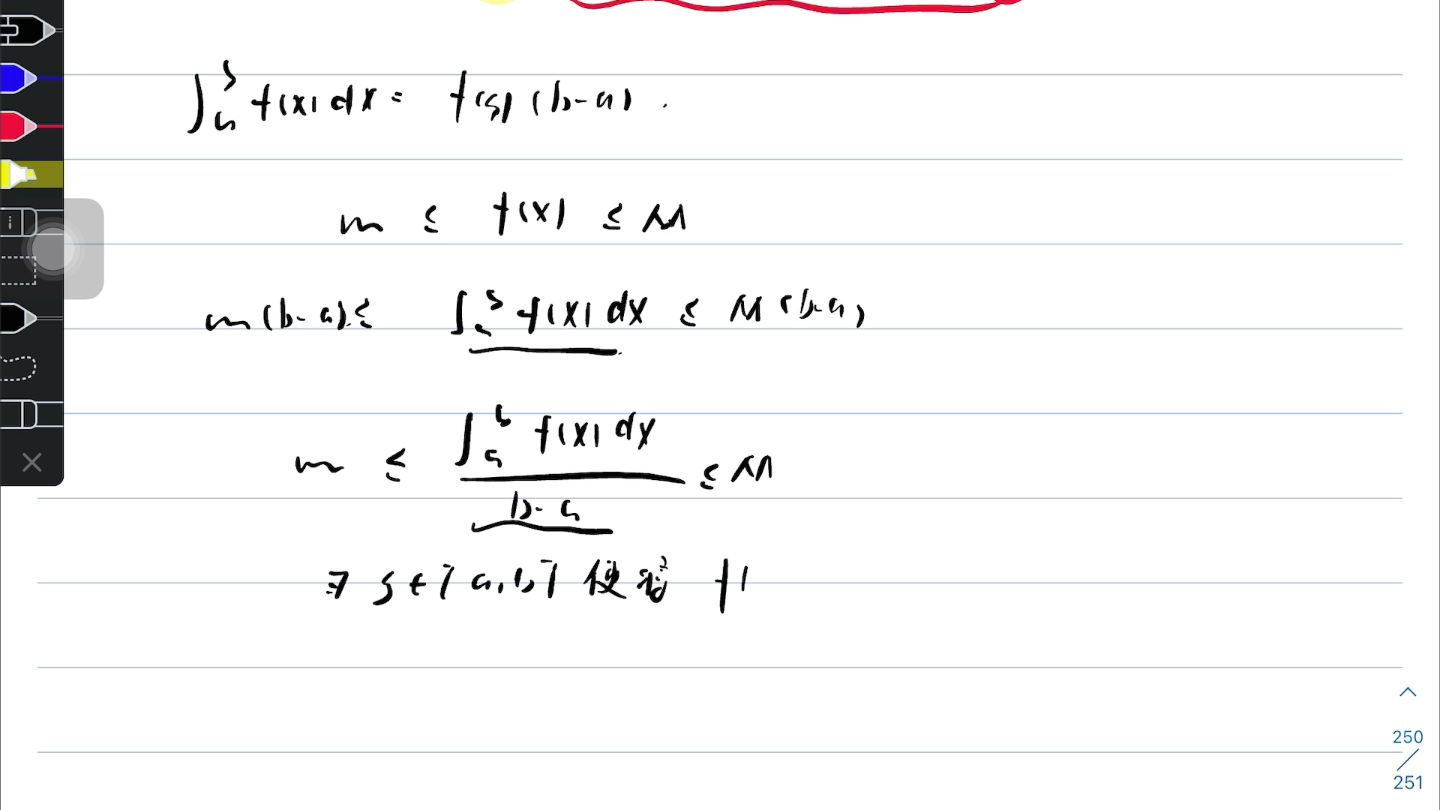 ∫_a^b f(x) dx = f(ξ) (b-a).
m ≤ f(x) ≤ M
m(b-a) ≤ ∫_a^b f(x) dx ≤ M(b-a)
m ≤ ∫_a^b f(x) dx / b-a ≤ M
∃ ξ ∈ [a,b] 使得 f(
250
251